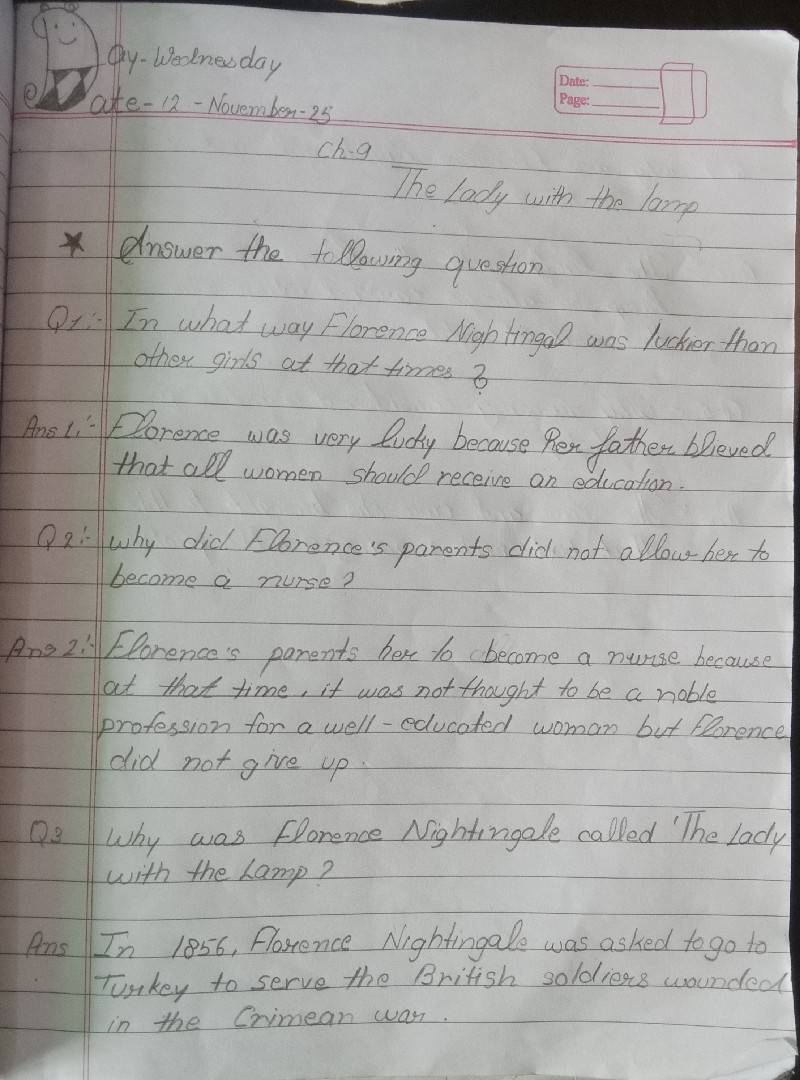 Day-Wednesday
Date:
Page:
Date-12-November-25
Ch-9
The Lady with the lamp
★ Answer the following question
Q1:- In what way Florence Nightingal was luckier than
other girls at that times?
Ans 1:- Florence was very lucky because her father blieved
that all women should receive an education.
Q2:- why did Florence's parents did not allow her to
become a nurse?
Ans 2:- Florence's parents her to become a nurse because
at that time, it was not thought to be a noble
profession for a well-educated woman but Florence
did not give up.
Q3 Why was Florence Nightingale called 'The Lady
with the Lamp?
Ans In 1856, Florence Nightingale was asked to go to
Turkey to serve the British soldiers wounded
in the Crimean war.